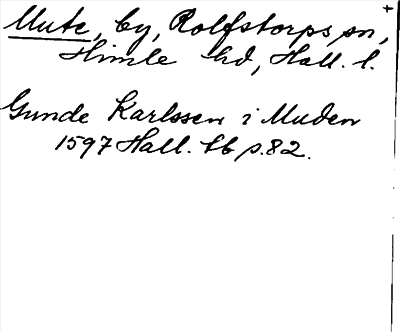 Mute, by, Rolfstorps sn,
Himle hd, Hall. l.
Gunde Karlssen i Muden
1597 Hall. tb p. 82.